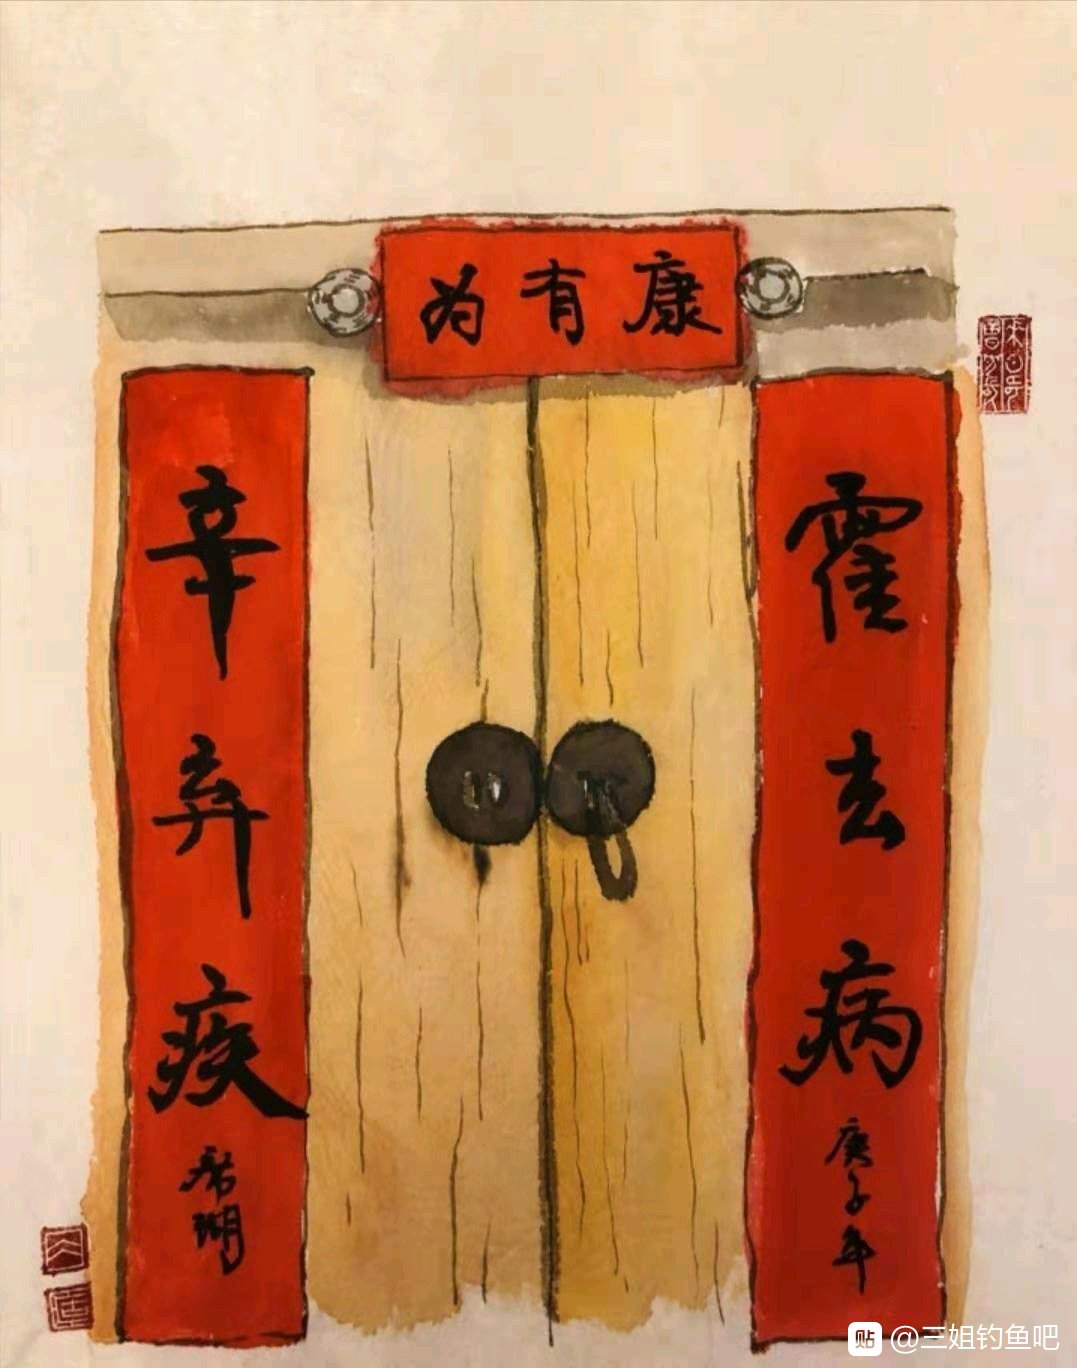 康有为
霍去病
庚子年
辛弃疾
贴 @三姐钓鱼吧